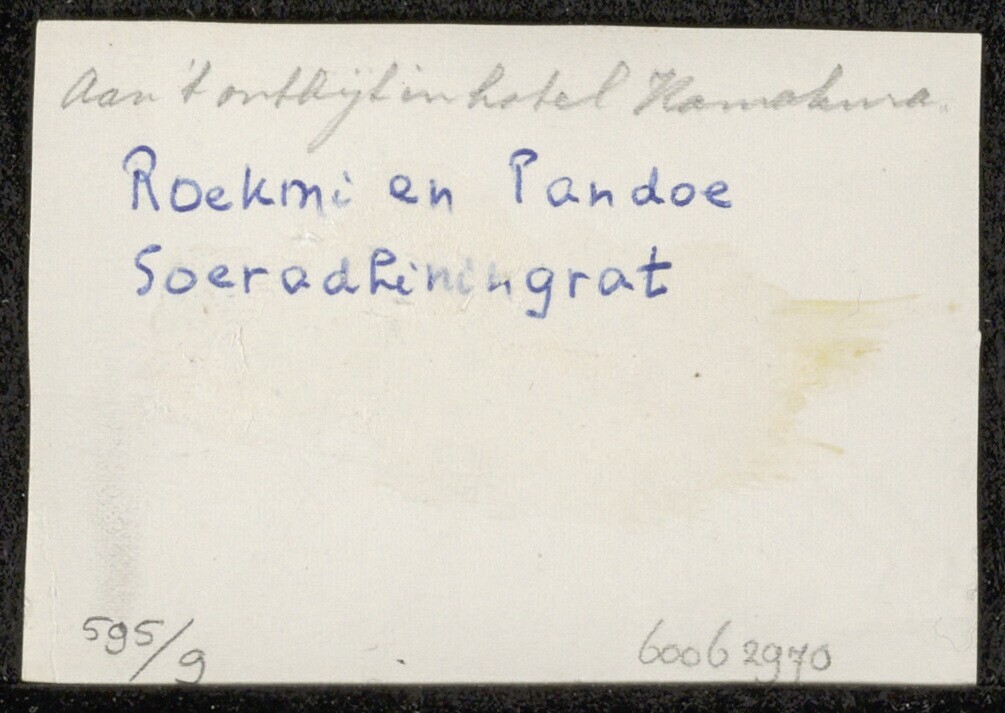 Aan 't ontbijt in hotel Kamakura.
Roekmi en Pandoe
Soeradhiningrat
595/9
60062970